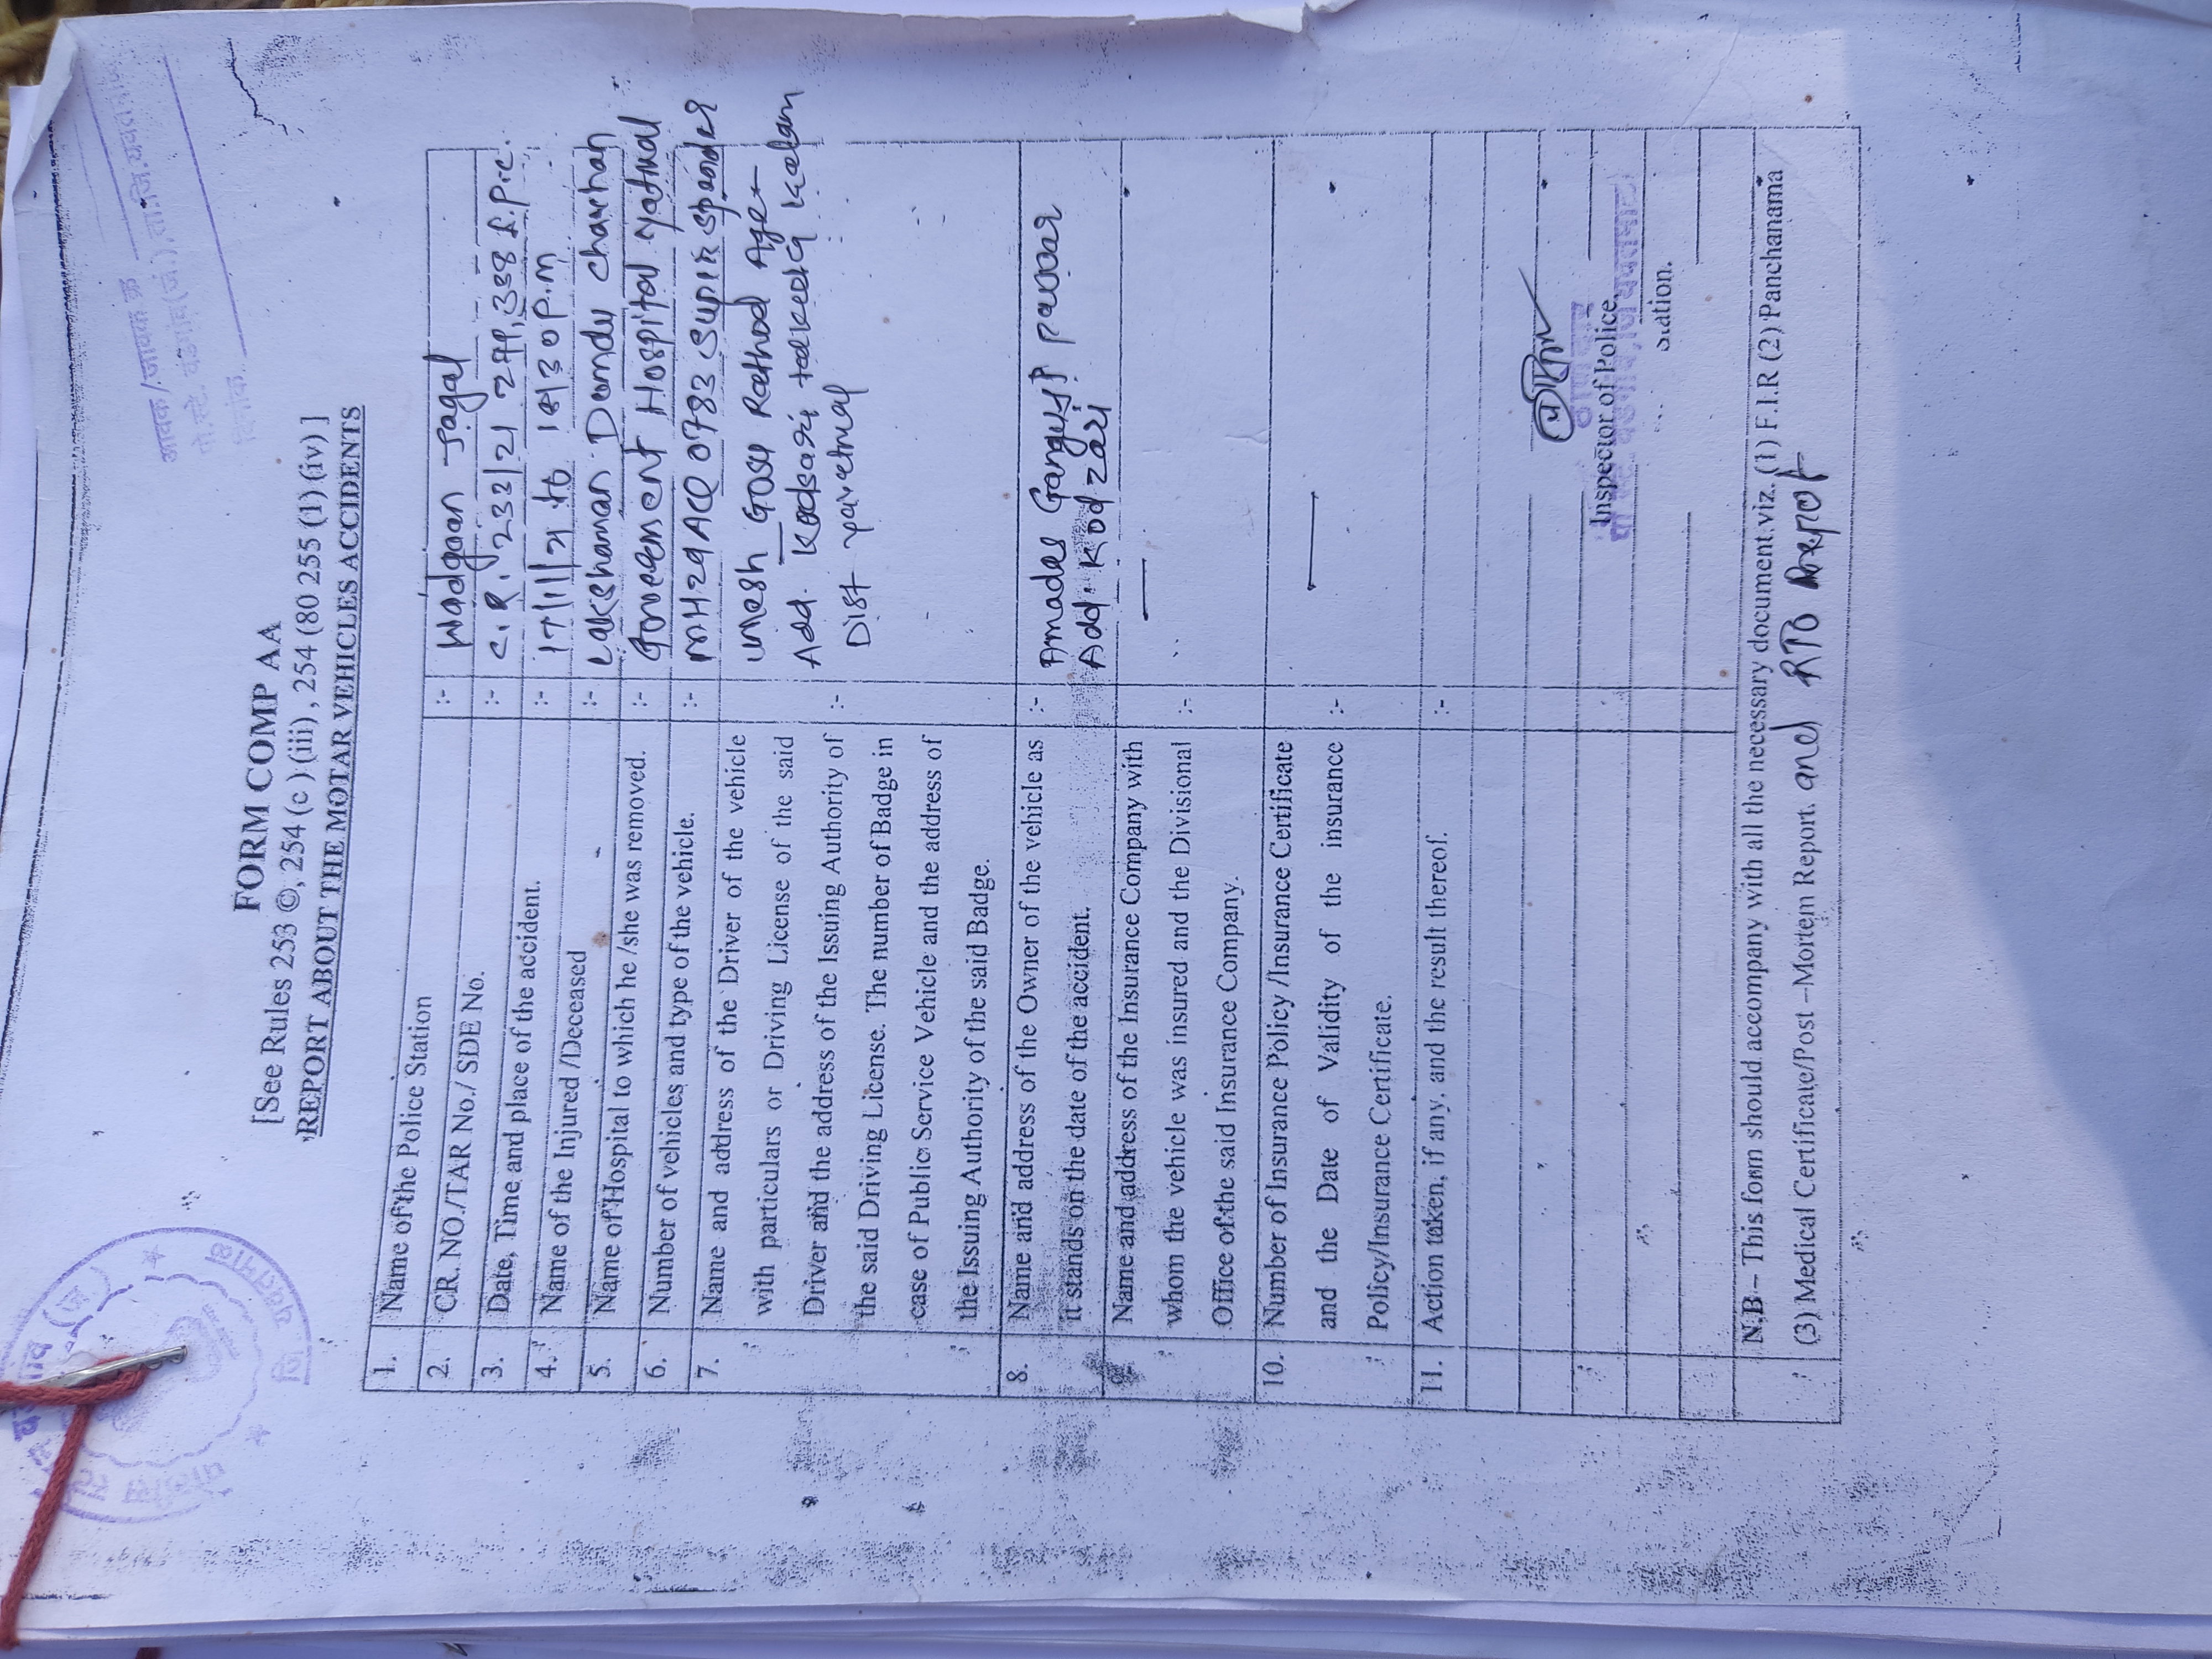 आवक/जावक क्र
दिनांक
FORM COMP AA
[See Rules 253 ©, 254 (c ) (iii) , 254 (80 255 (1) (iv) ]
REPORT ABOUT THE MOTAR VEHICLES ACCIDENTS
1. Name of the Police Station :- Wadgaon Jagal
2. CR. NO./TAR No./ SDE No. :- C.R. 233/21 279, 338 I.P.C.
3. Date, Time and place of the accident. :- 17/11/21 to 18/30 P.m
4. Name of the Injured /Deceased :- Lakshaman Domdu chawhan
5. Name of Hospital to which he /she was removed. :- Government Hospital yatmal
6. Number of vehicles and type of the vehicle. :- MH29 AC 0783
7. Name and address of the Driver of the vehicle
with particulars or Driving License of the said
Driver and the address of the Issuing Authority of :-
the said Driving License. The number of Badge in
case of Public Service Vehicle and the address of
the Issuing Authority of the said Badge.
umesh Gosu Rathod Age
Add.
Dist yavatmal
8. Name and address of the Owner of the vehicle as :-
it stands on the date of the accident.
pawar
Add. Kod zari
Name and address of the Insurance Company with
whom the vehicle was insured and the Divisional :-
Office of the said Insurance Company.
10. Number of Insurance Policy /Insurance Certificate
and the Date of Validity of the insurance :-
Policy/Insurance Certificate.
11. Action taken, if any, and the result thereof. :-
Inspector of Police
N.B – This form should accompany with all the necessary document viz. (1) F.I.R (2) Panchanama
(3) Medical Certificate/Post –Mortem Report. and RTO Repot